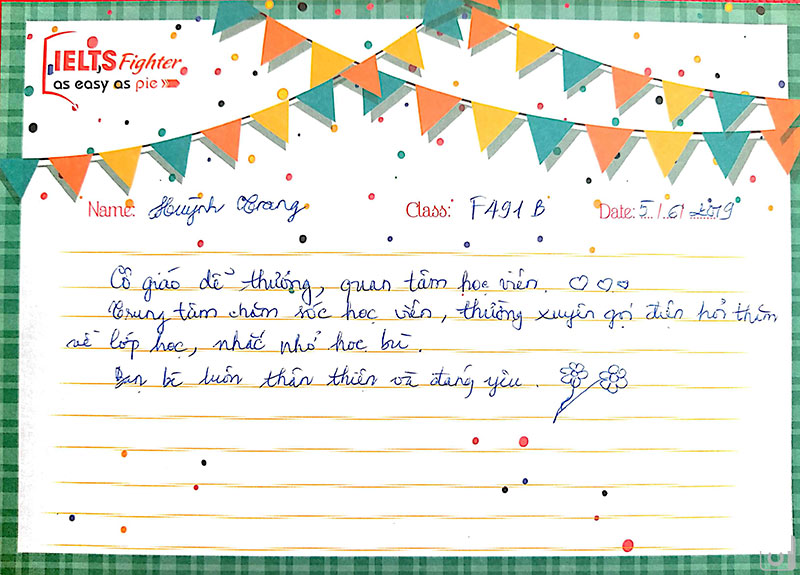 IELTS Fighter
as easy as pie
Name: Huỳnh Trang Class: F491 B Date: 5/6/2019
Cô giáo dễ thương, quan tâm học viên.
Trung tâm chăm sóc học viên, thường xuyên gọi điện hỏi thăm
về lớp học, nhắc nhở học bù.
Bạn bè luôn thân thiện và đáng yêu.